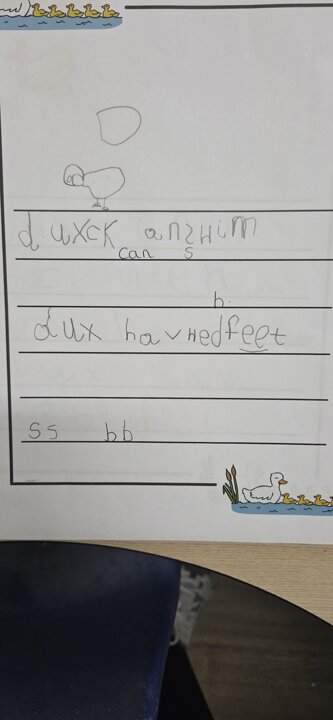 duxck anzwim
can s
b.
dux havwedfeet
ss bb